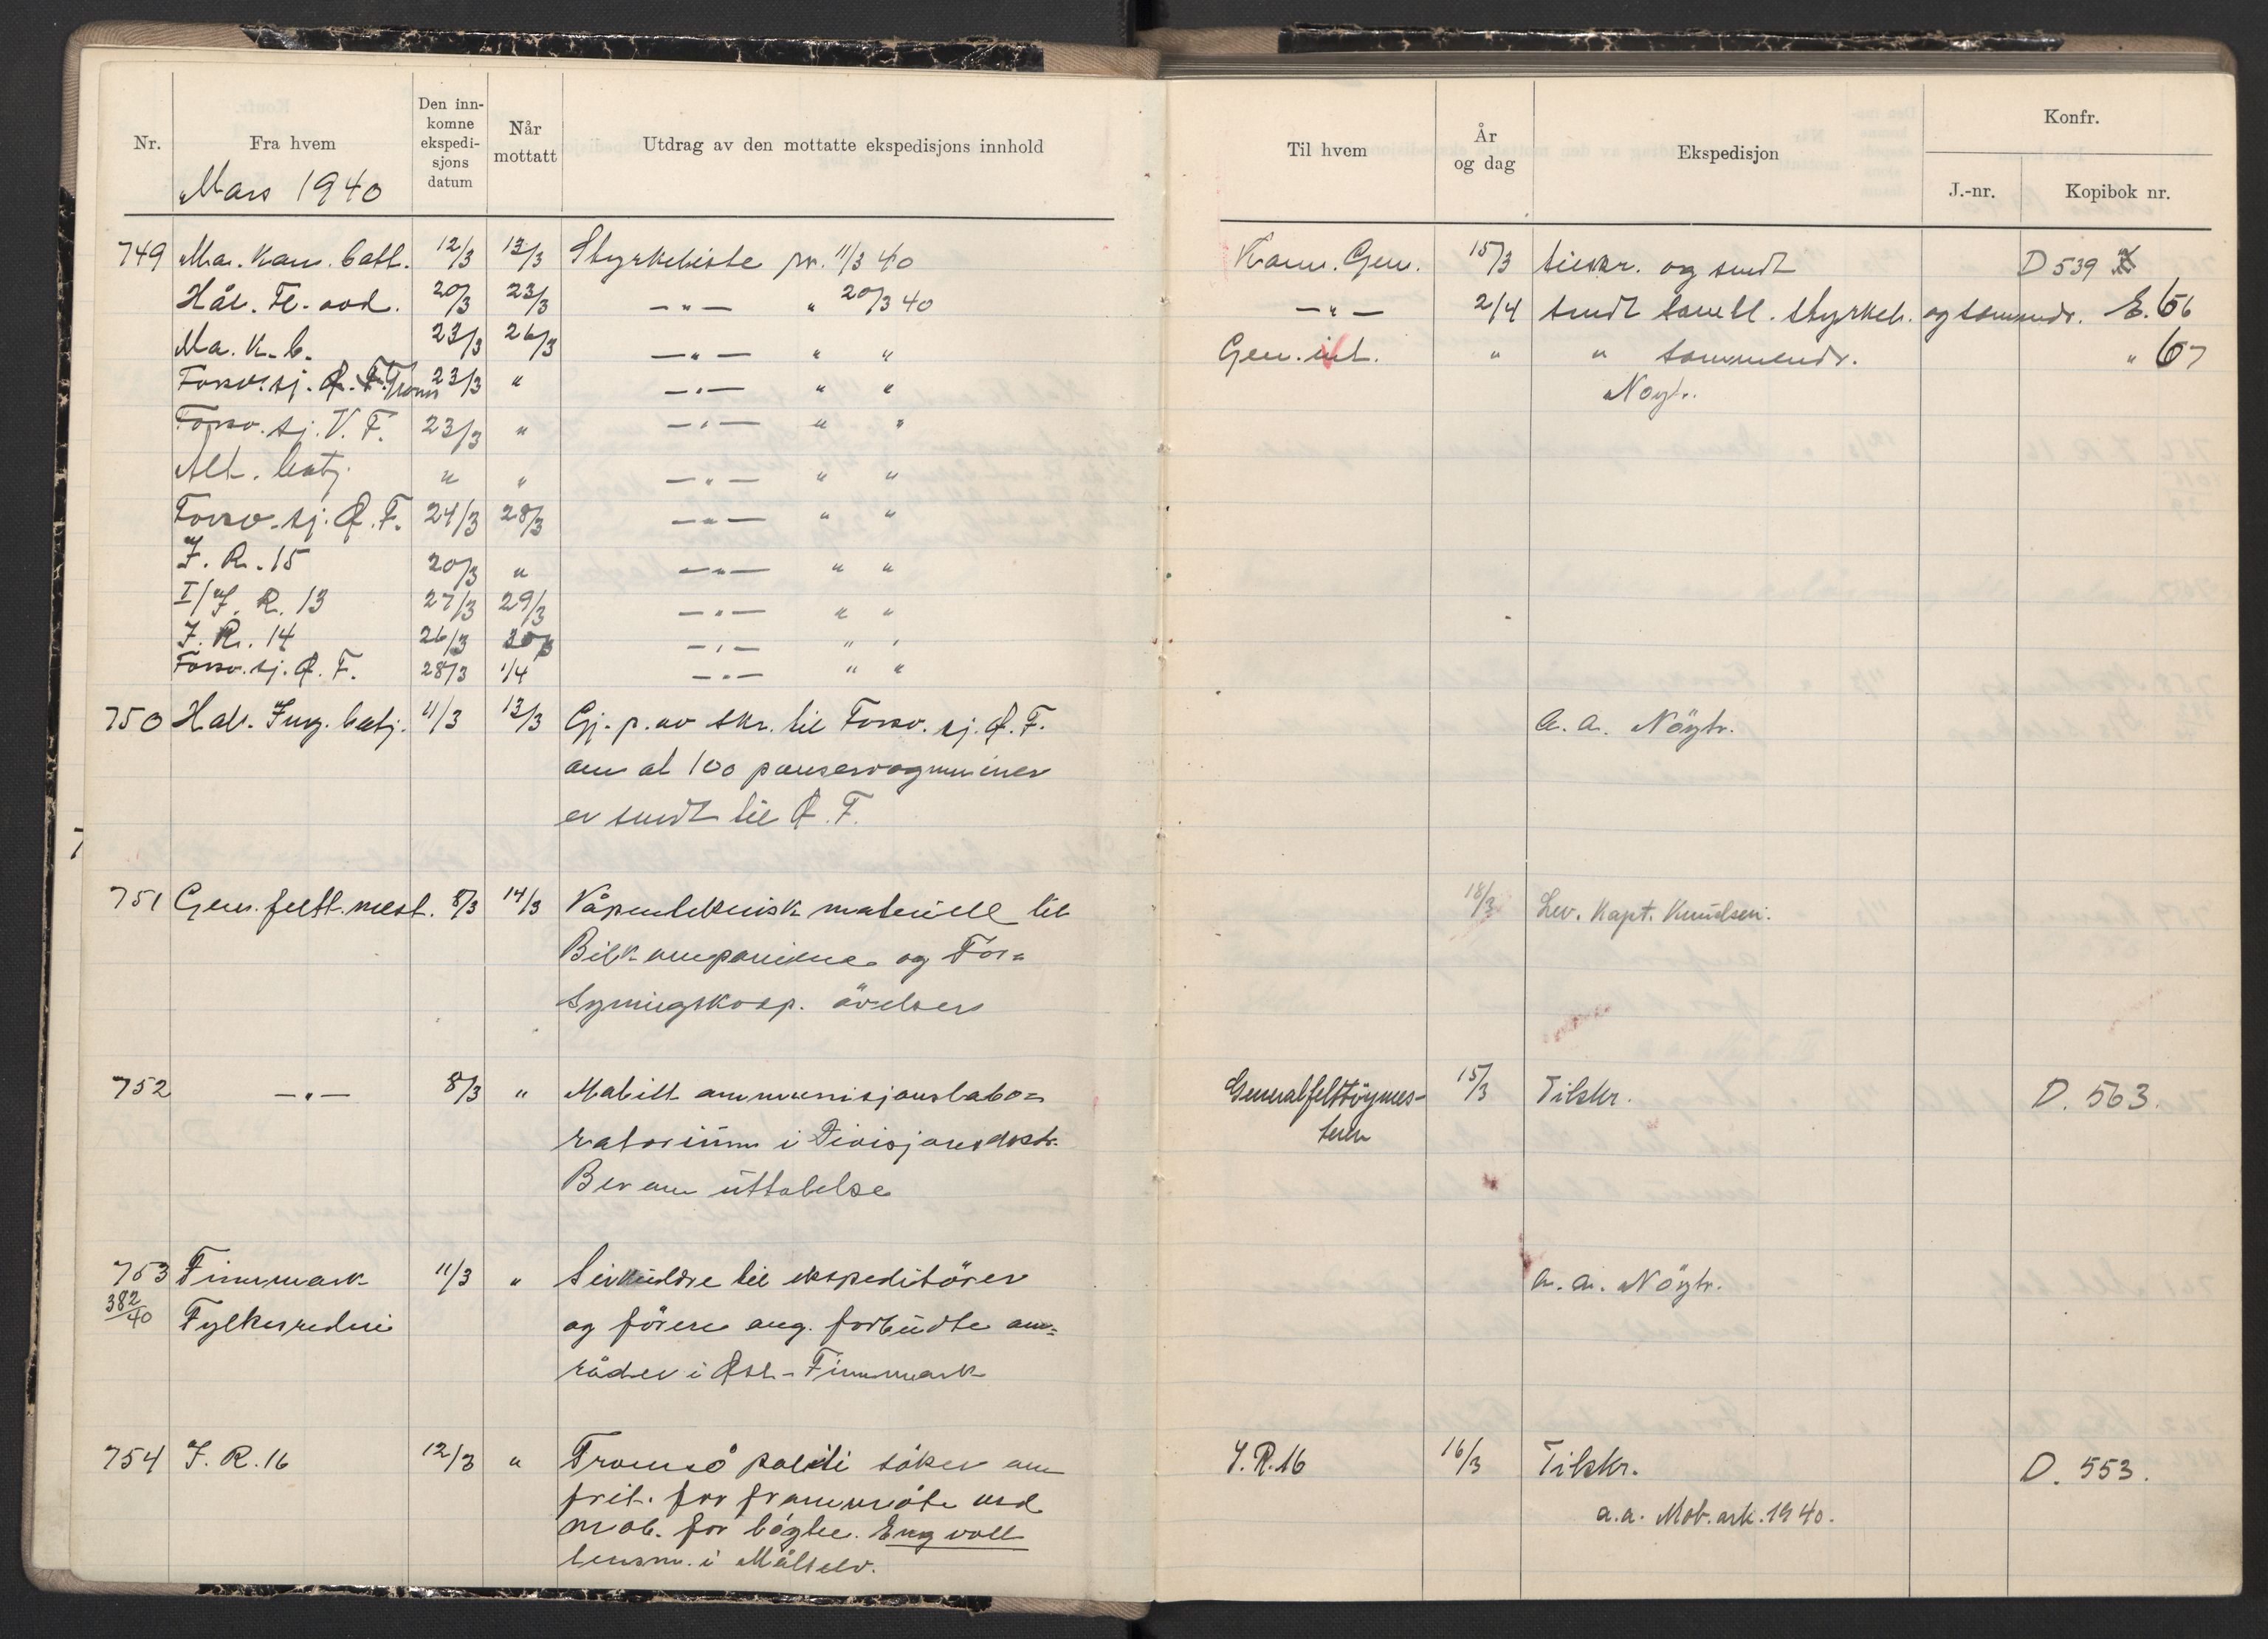 Nr.
Fra hvem
Den inn-
komne
ekspedi-
sjons
datum
Når
mottatt
Utdrag av den mottatte ekspedisjons innhold
Mars 1940
749 Ma. Kan. batt. 12/3 13/3 Styrkeliste pr. 11/3 40
Hål. Fl. avd. 20/3 23/3 —"— " 20/3 40
Ma. K. b. 23/3 26/3 —"— " "
Forsv. sj. Ø. F. Troms 23/3 " —"— " "
Forsv. sj. V. F. 23/3 " —"— " "
Alt. batj. " " —"— " "
Forsv. sj. Ø. F. 24/3 28/3 —"— " "
I. R. 15 20/3 " —"— " "
I/I. R. 13 27/3 29/3 —"— " "
I. R. 14 26/3 30/3 —"— " "
Forsv. sj. Ø. F. 28/3 1/4 —"— " "
750 Hål. Ing. batj. 11/3 13/3 Gj. p. av skr. til Forsv. sj. Ø. F.
om at 100 panservognminer
er sendt til Ø. F.
751 Gen. felt. mest. 8/3 14/3 Våpenteknisk materiell til
Bilkompaniene og For=
syningskorp. övelser
752 —"— 8/3 " Mobilt ammunisjonslabo=
ratorium i Divisjonsdistr.
Ber om uttalelse
753 Finnmark 11/3 " Sirkulære til ekspeditörer
382/40 Fylkesrederi og förere ang. forbudte om=
råder i Øst-Finnmark
754 I. R. 16 12/3 " Tromsö politi söker om
frit. for frammöte ved
mob. for Engvoll
lensm. i Målselv.
Til hvem
År
og dag
Ekspedisjon
Konfr.
J.-nr.
Kopibok nr.
Komm. Gen. 15/3 tilskr. og sendt D 539
—"— 2/4 sendt samtl. styrkel. og sammendr. E. 656
Gen. int. " " sammendr. " 67
Nøytr.
a. a. Nöytr.
18/3 Lev. Kapt. Knudsen.
Generalfelttöymes-
teren 15/3 Tilskr. D. 563.
a. a. Nöytr.
I. R. 16 16/3 Tilskr. D. 553.
a.a. Mob. ark. 1940.